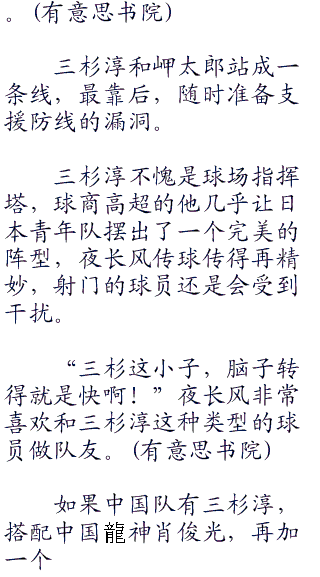 。(有意思书院)
三杉淳和岬太郎站成一
条线，最靠后，随时准备支
援防线的漏洞。
三杉淳不愧是球场指挥
塔，球商高超的他几乎让日
本青年队摆出了一个完美的
阵型，夜长风传球传得再精
妙，射门的球员还是会受到
干扰。
“三杉这小子，脑子转
得就是快啊！”夜长风非常
喜欢和三杉淳这种类型的球
员做队友。(有意思书院)
如果中国队有三杉淳，
搭配中国龍神肖俊光，再加
一个